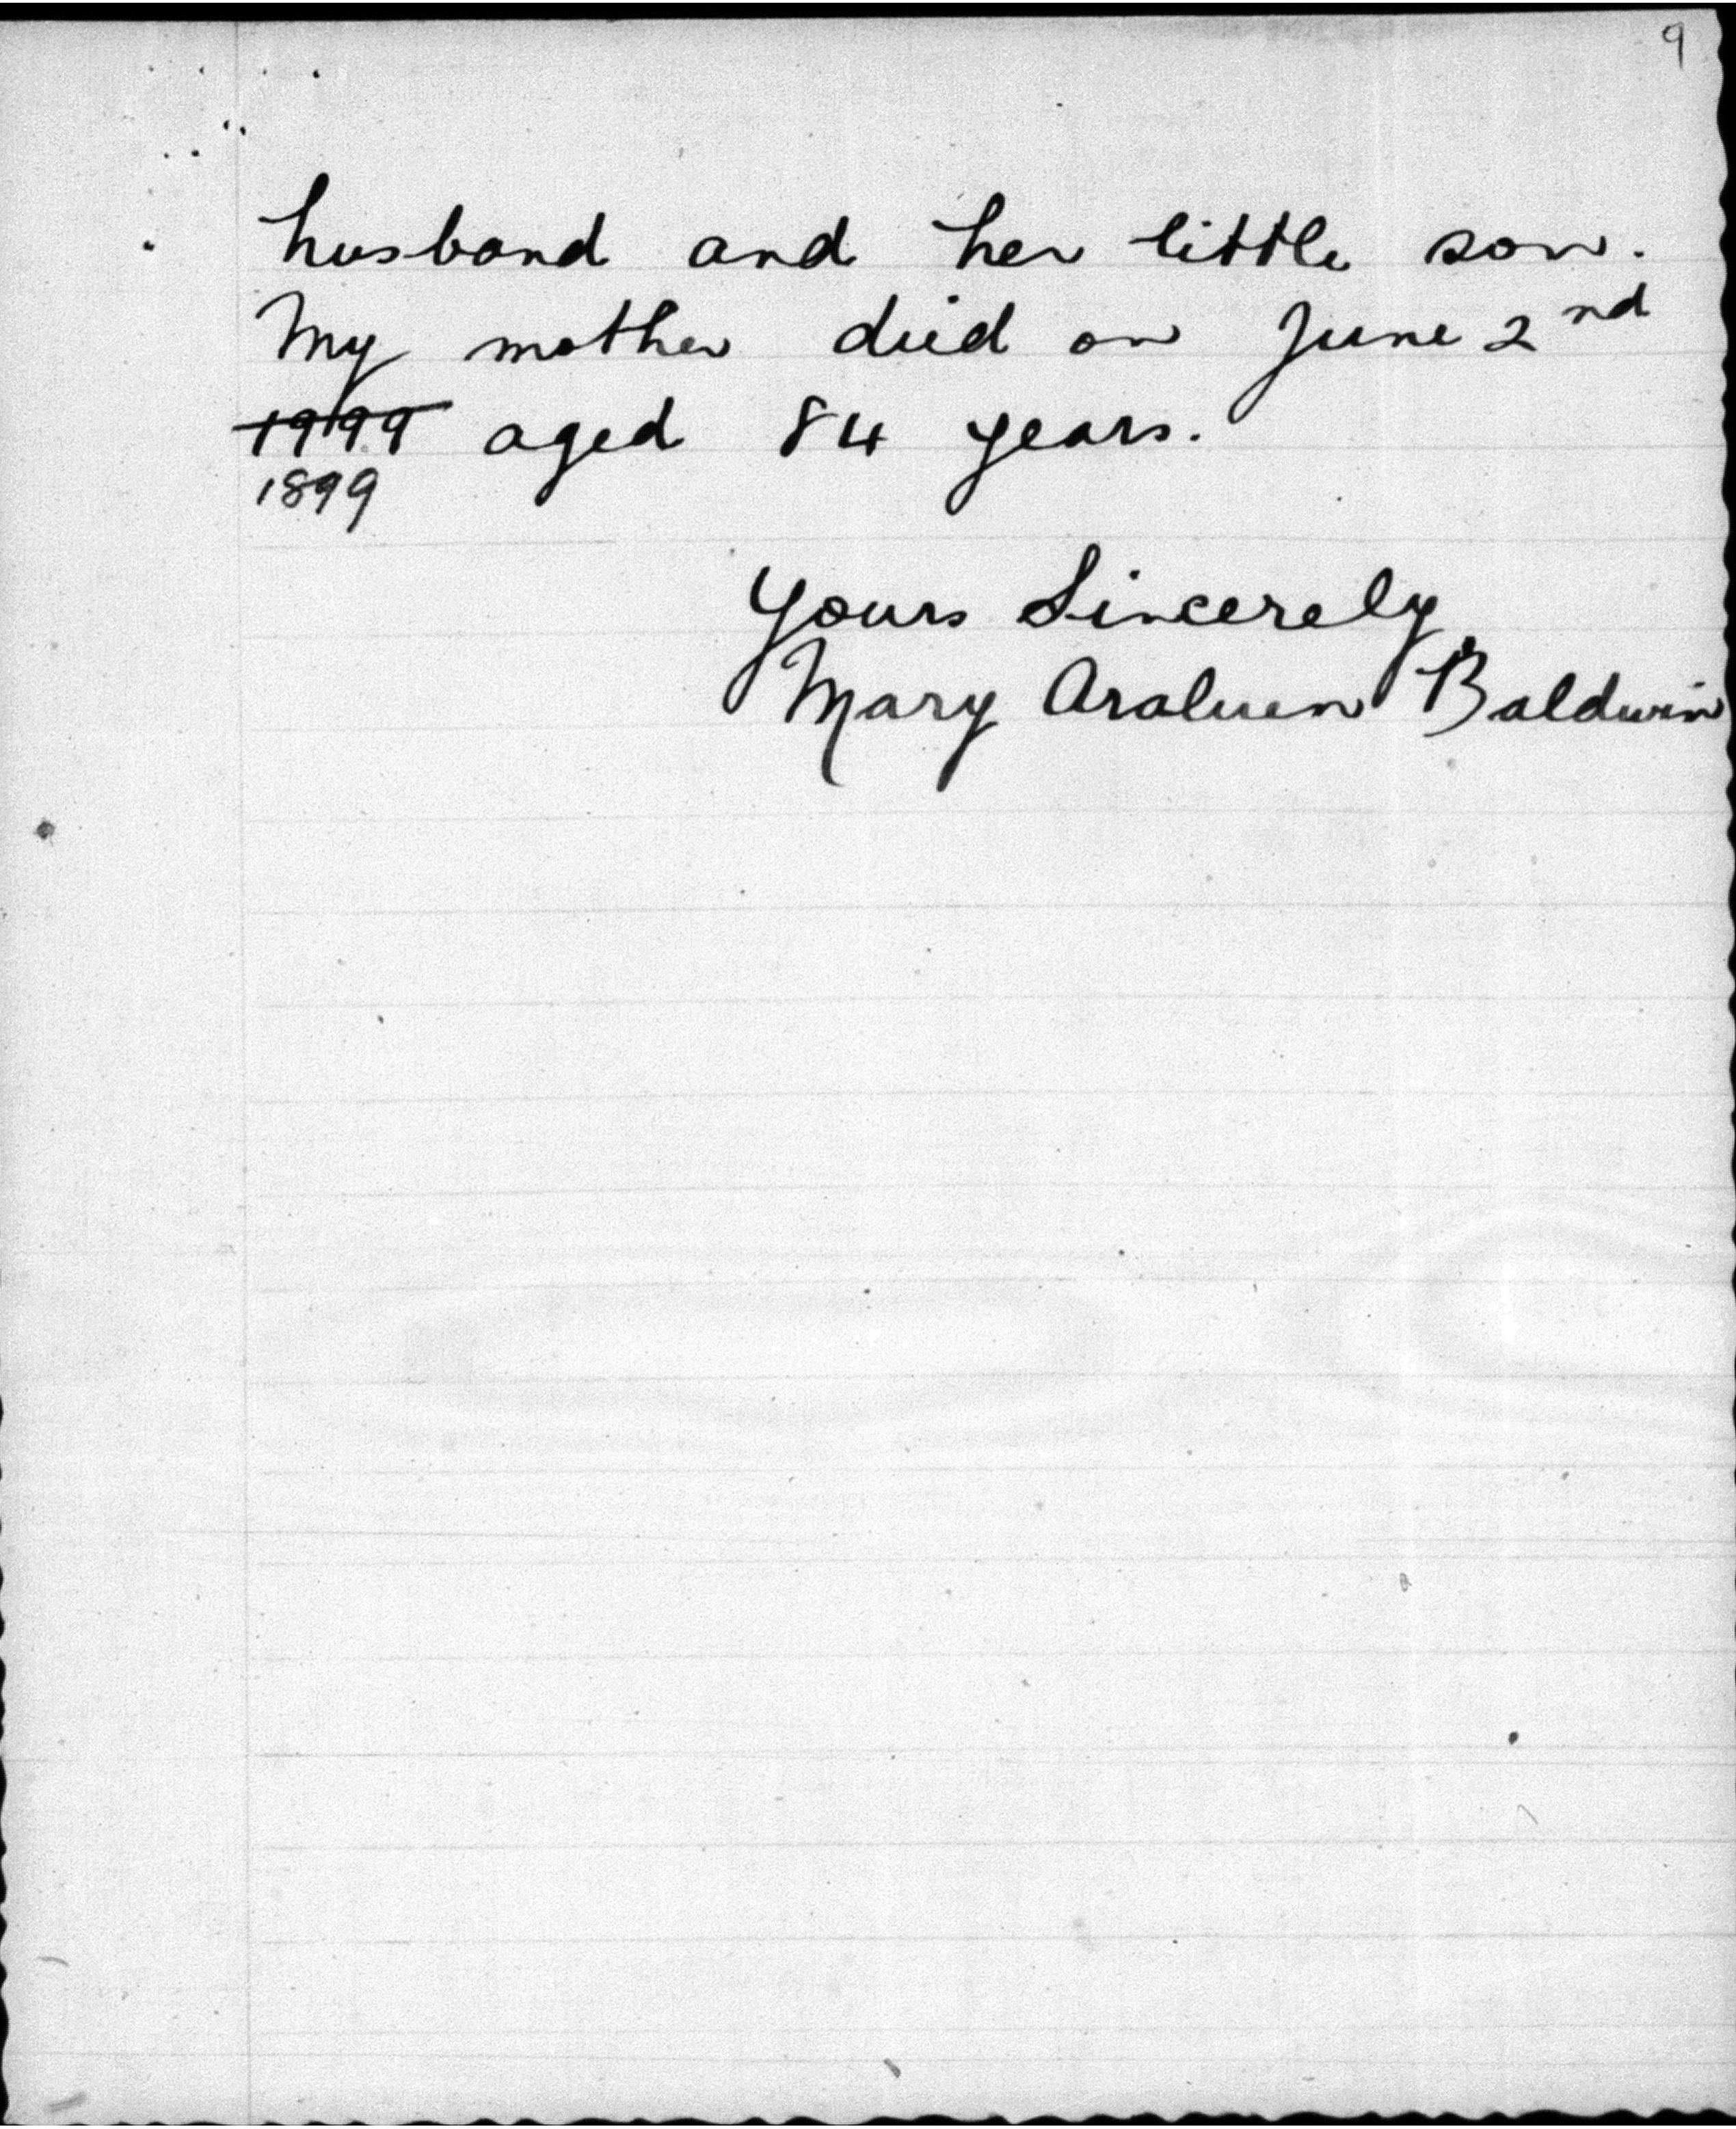 9
husband and her little son.
My mother died on June 2nd
1999 aged 84 years.
1899
Yours Sincerely
Mary Araluen Baldwin